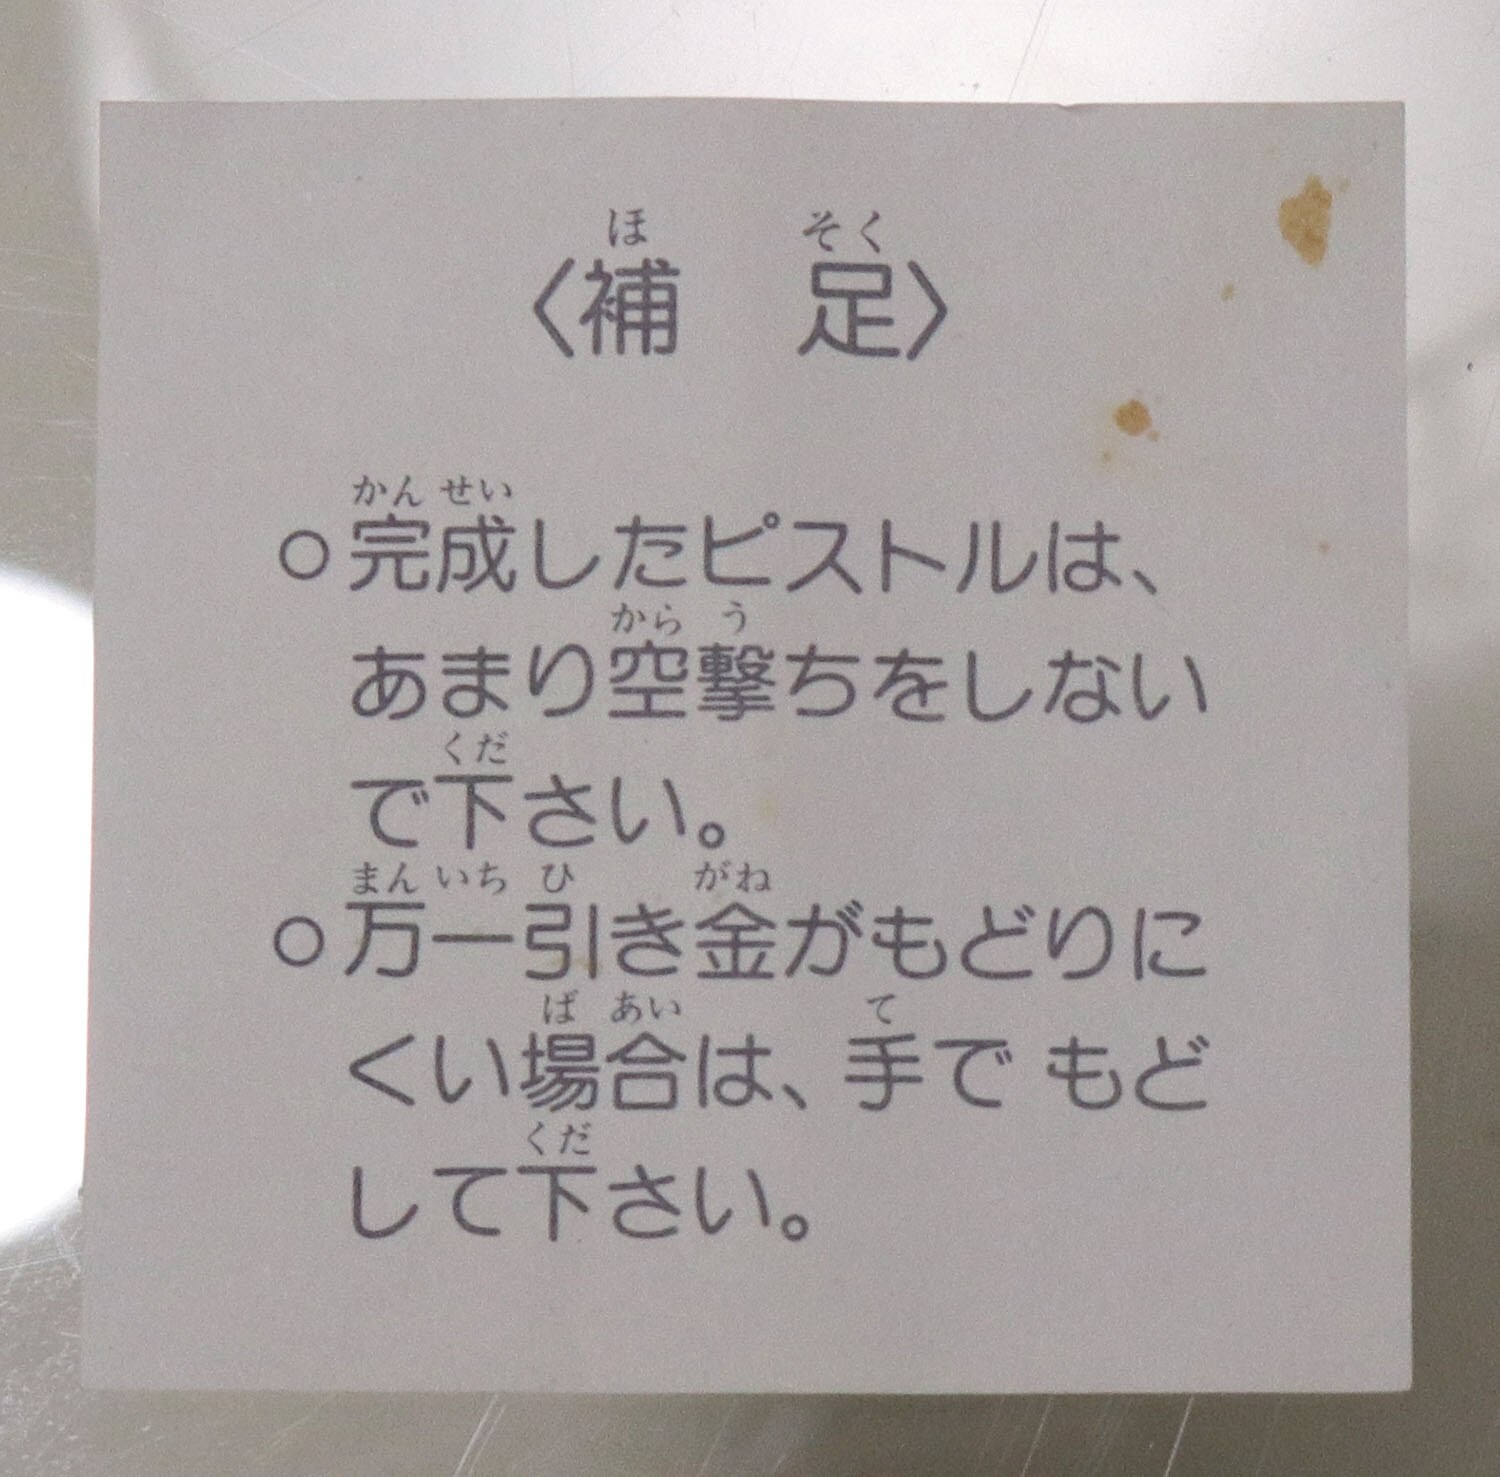 〈補　足〉
○完成したピストルは、
あまり空撃ちをしない
で下さい。
○万一引き金がもどりに
くい場合は、手で もど
して下さい。